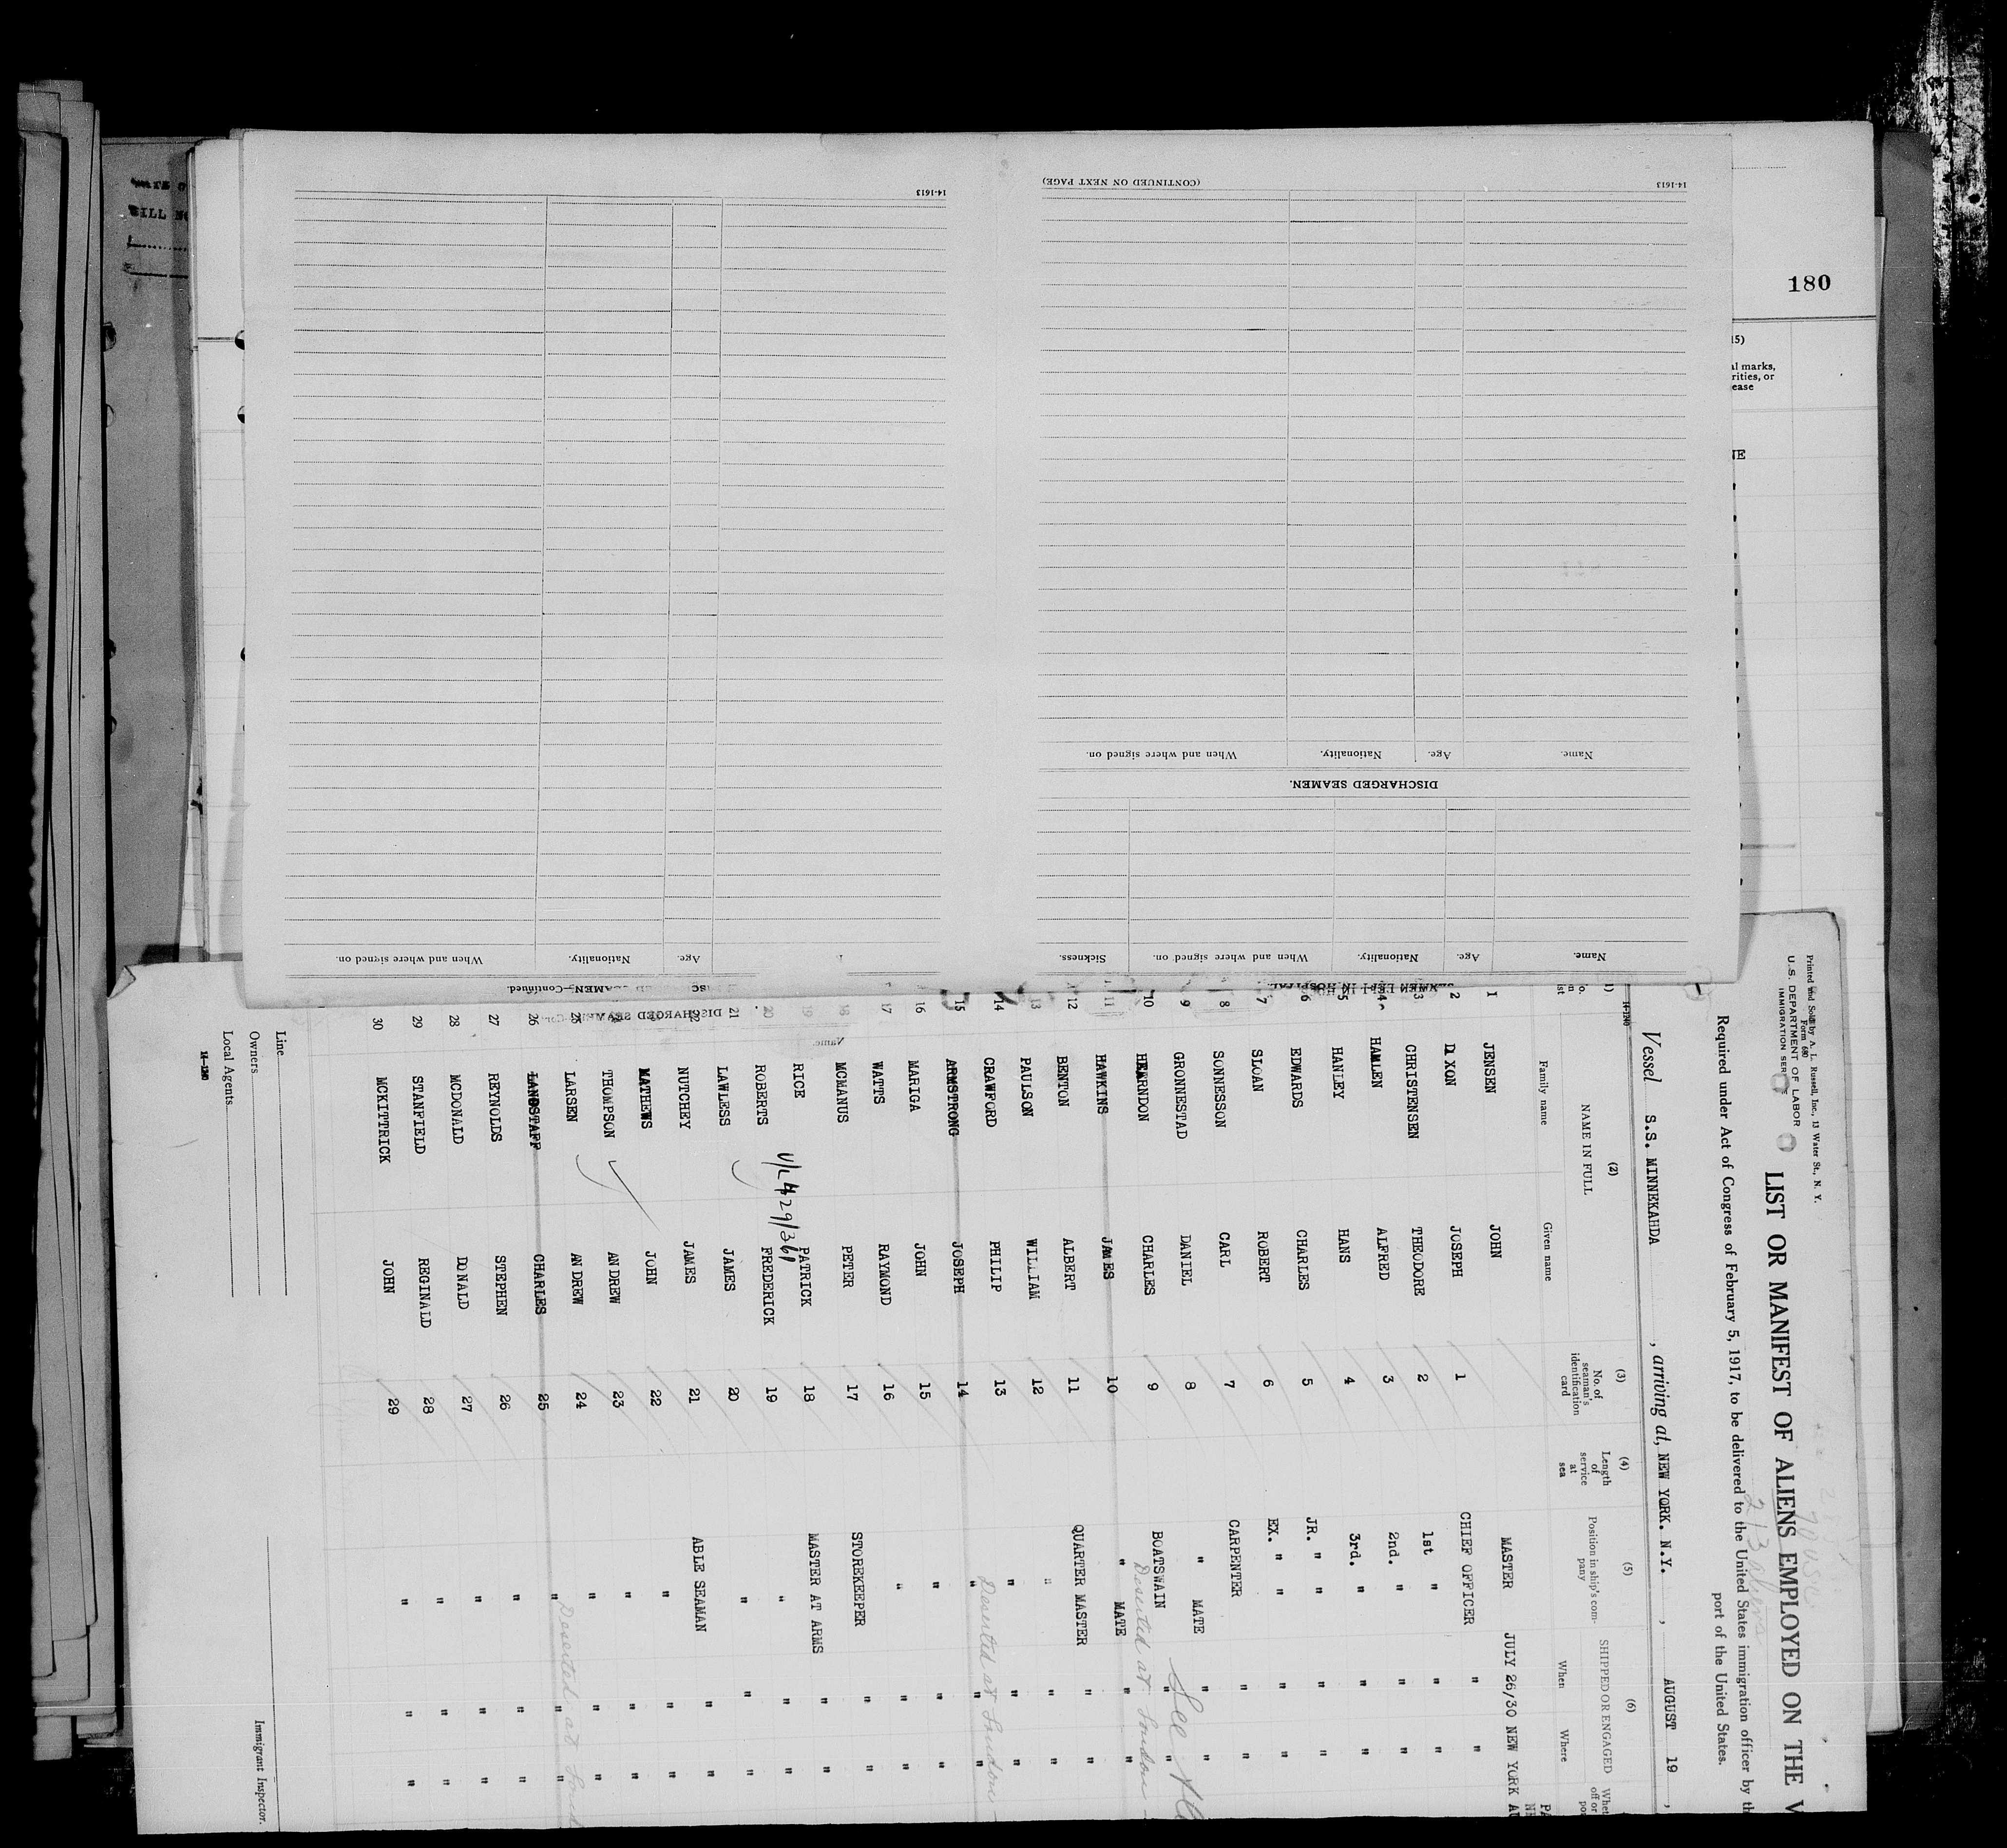 180
15)
al marks,
rities, or
ease
NE
14-1613
(CONTINUED ON NEXT PAGE)
14-1613
When and where signed on.
Nationality.
Age.
Name.
DISCHARGED SEAMEN.
Sickness.
When and where signed on.
Nationality.
Age.
Name.
When and where signed on.
Nationality.
Age.
SEAMEN—Continued.
DISCHARGED SEAMEN
Name.
Printed and Sold by A. L. Russell, Inc., 13 Water St., N. Y.
Form 680
U. S. DEPARTMENT OF LABOR
IMMIGRATION SERVICE
LIST OR MANIFEST OF ALIENS EMPLOYED ON THE V
Required under Act of Congress of February 5, 1917, to be delivered to the United States immigration officer by th
port of the United States.
Vessel S.S. MINNEKAHDA , arriving at, NEW YORK. N.Y. , AUGUST 19 ,
(2) (3) (4) (5) (6)
NAME IN FULL No. of seaman's identification card Length of service at sea Position in ship's company SHIPPED OR ENGAGED
Family name Given name When Where
1 JENSEN JOHN MASTER JULY 26/30 NEW YORK
2 DIXON JOSEPH 1 CHIEF OFFICER " "
3 CHRISTENSEN THEODORE 2 1st " " "
4 HAMLEN ALFRED 3 2nd. " " "
5 HANLEY HANS 4 3rd. " " "
6 EDWARDS CHARLES 5 JR. " " " "
7 SLOAN ROBERT 6 EX. " " " "
8 SONNESSON CARL 7 CARPENTER " "
9 GRONNESTAD DANIEL 8 " MATE " "
10 HEARNDON CHARLES 9 BOATSWAIN " "
11 HAWKINS JAMES 10 " MATE " " Deserted at London
12 BENTON ALBERT 11 QUARTER MASTER " "
13 PAULSON WILLIAM 12 " " "
14 CRAWFORD PHILIP 13 " " "
15 ARMSTRONG JOSEPH 14 " " " Deserted at London
16 MARIGA JOHN 15 " " "
17 WATTS RAYMOND 16 " " "
18 MCMANUS PETER 17 STOREKEEPER " "
19 RICE PATRICK 18 MASTER AT ARMS " "
20 ROBERTS FREDERICK 19 " " "
21 LAWLESS JAMES 20 " " "
22 NUTCHEY JAMES 21 ABLE SEAMAN " "
23 MATHEWS JOHN 22 " " "
24 THOMPSON ANDREW 23 " " "
25 LARSEN ANDREW 24 " " "
26 LANGSTAFF CHARLES 25 " " " Deserted at
27 REYNOLDS STEPHEN 26 " " "
28 MCDONALD DONALD 27 " " "
29 STANFIELD REGINALD 28 " " "
30 MCKITTRICK JOHN 29 " " "
Line
Owners
Local Agents
Immigrant Inspector.